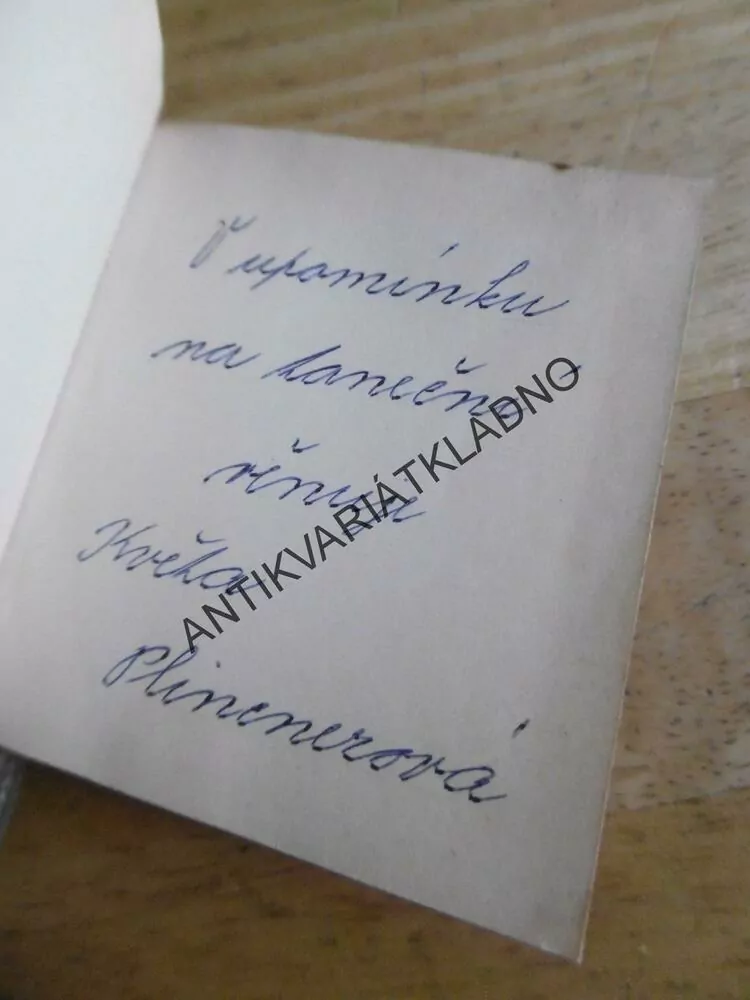 V upomínku
na taneční
věnuje
Květa
Plincnerová
ANTIKVARIÁTKLADNO